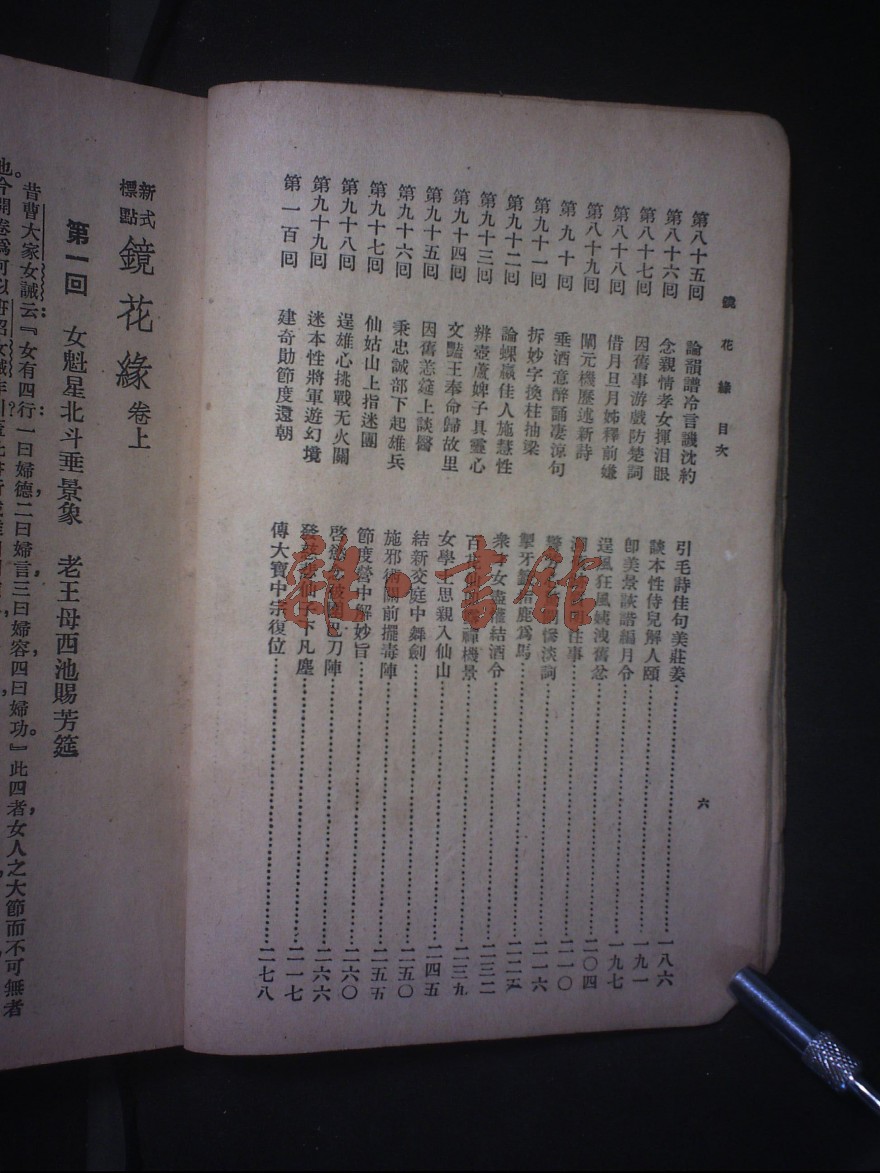 鏡花緣目次
六
第八十五回 論韻譜冷言譏沈約 引毛詩佳句美莊姜 一八六
第八十六回 念親情孝女揮泪眼 談本性侍兒解人頤 一九一
第八十七回 因舊事游戲防楚詞 卽美景談諧編月令 一九七
第八十八回 借月旦月姊釋前嫌 逞風狂風姨洩舊忿 二〇四
第八十九回 闡元機歷述新詩 事 二一〇
第九十回 垂酒意醉誦凄涼句 慘淡詞 二一六
第九十一回 拆妙字換柱抽梁 掣牙籤 鹿爲馬 二二五
第九十二回 論蜾蠃佳人施慧性 女盡懽結酒令 二三二
第九十三回 辨壺蘆婢子具靈心 百 機景 二三九
第九十四回 文豔王奉命歸故里 女學士思親入仙山 二四五
第九十五回 因舊恙筵上談醫 結新交庭中舞劍 二五〇
第九十六回 秉忠誠部下起雄兵 施邪術關前擺毒陣 二五五
第九十七回 仙姑山上指迷團 節度營中解妙旨 二六〇
第九十八回 逞雄心挑戰无火關 啓 刀陣 二六六
第九十九回 迷本性將軍遊幻境 發慈 仙 下凡塵 二一七
第一百回 建奇助節度還朝 傳大寶中宗復位 二七八
新式標點 鏡花緣 卷上
第一回 女魁星北斗垂景象 老王母西池賜芳筵
昔曹大家女誡云『女有四行一曰婦德二曰婦言三曰婦容四曰婦功。』此四者女人之大節而不可無者
也。今開卷爲何以
雜·書館